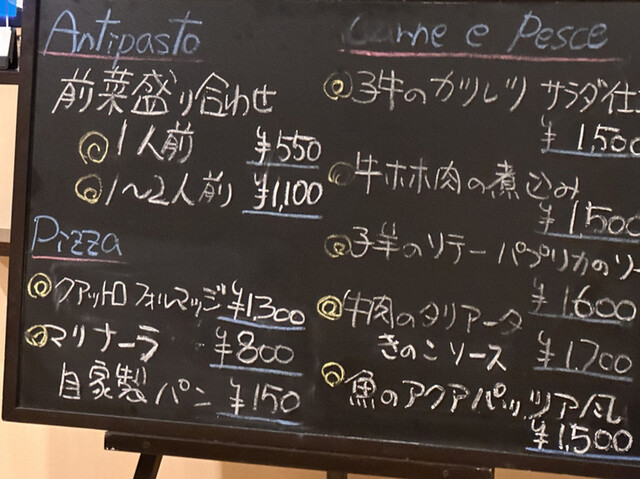 Antipasto
前菜盛り合わせ
1人前 ¥550
1~2人前 ¥1,100
Pizza
クアットロフォルマッジ ¥1,300
マリナーラ ¥800
自家製パン ¥150
Carne e Pesce
子牛のカツレツ サラダ仕
¥1,500
牛ホホ肉の煮込み
¥1,500
子羊のソテー パプリカのソー
¥1,600
牛肉のタリアータ
きのこソース ¥1,700
魚のアクアパッツァ風
¥1,500